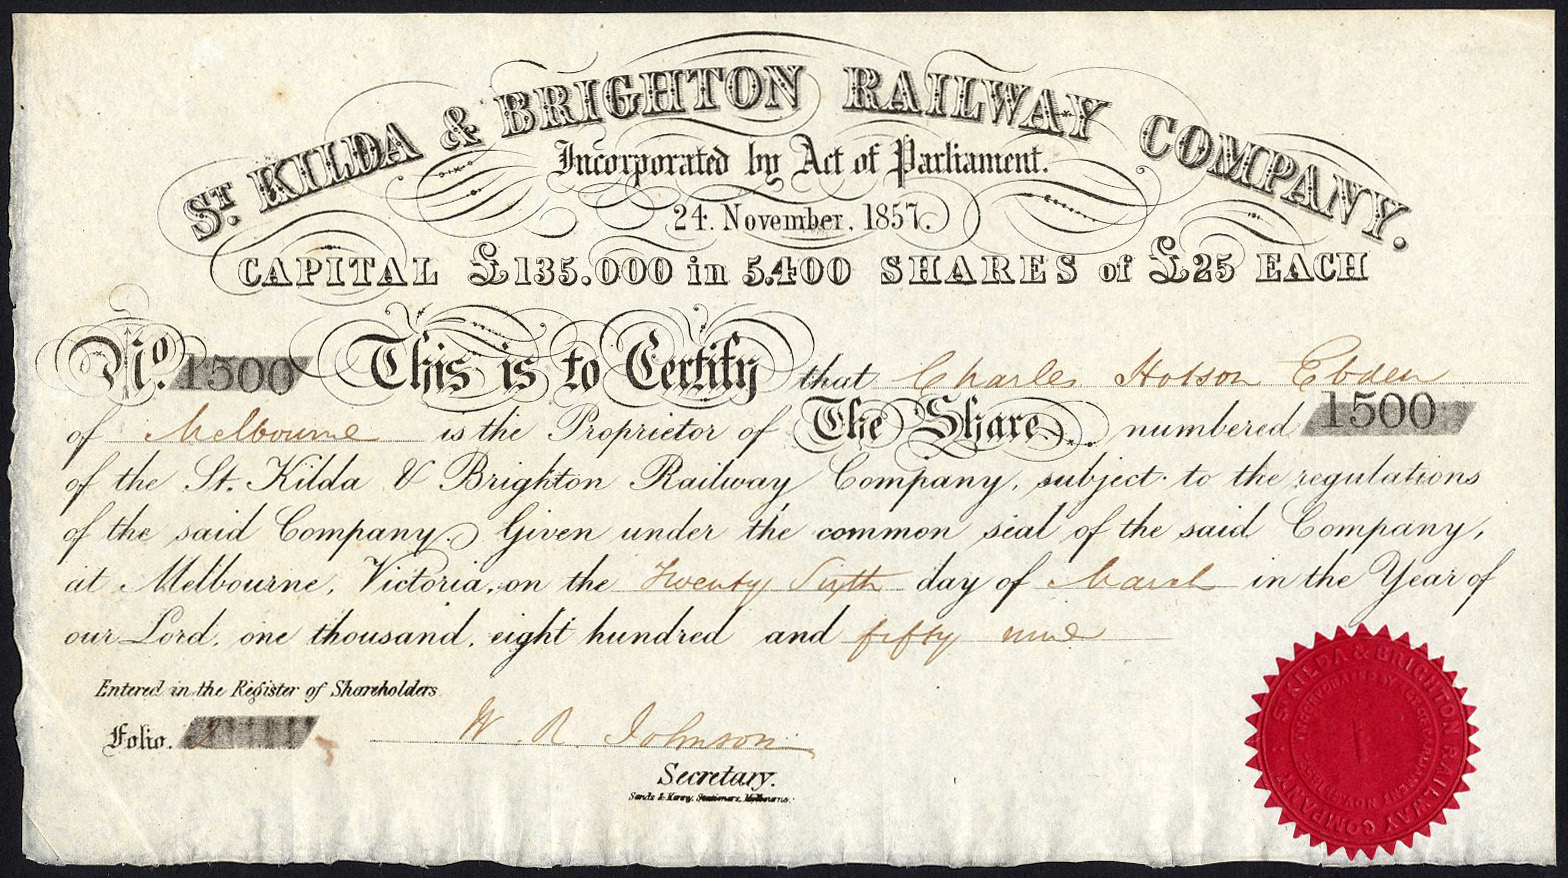 ST. KILDA & BRIGHTON RAILWAY COMPANY.
Incorporated by Act of Parliament.
24. November, 1857.
CAPITAL £135.000 in 5.400 SHARES of £25 EACH
No. 1500 This is to Certify that Charles Hotson Ebden
of Melbourne is the Proprietor of The Share numbered 1500
of the St. Kilda & Brighton Railway Company, subject to the regulations
of the said Company. Given under the common seal of the said Company,
at Melbourne, Victoria, on the Twenty Sixth day of March in the Year of
our Lord, one thousand, eight hundred and fifty nine
Entered in the Register of Shareholders
Folio. 2
W. R. Johnson
Secretary.
Sands & Kenny, Stationers, Melbourne.
ST KILDA & BRIGHTON RAILWAY COMPANY